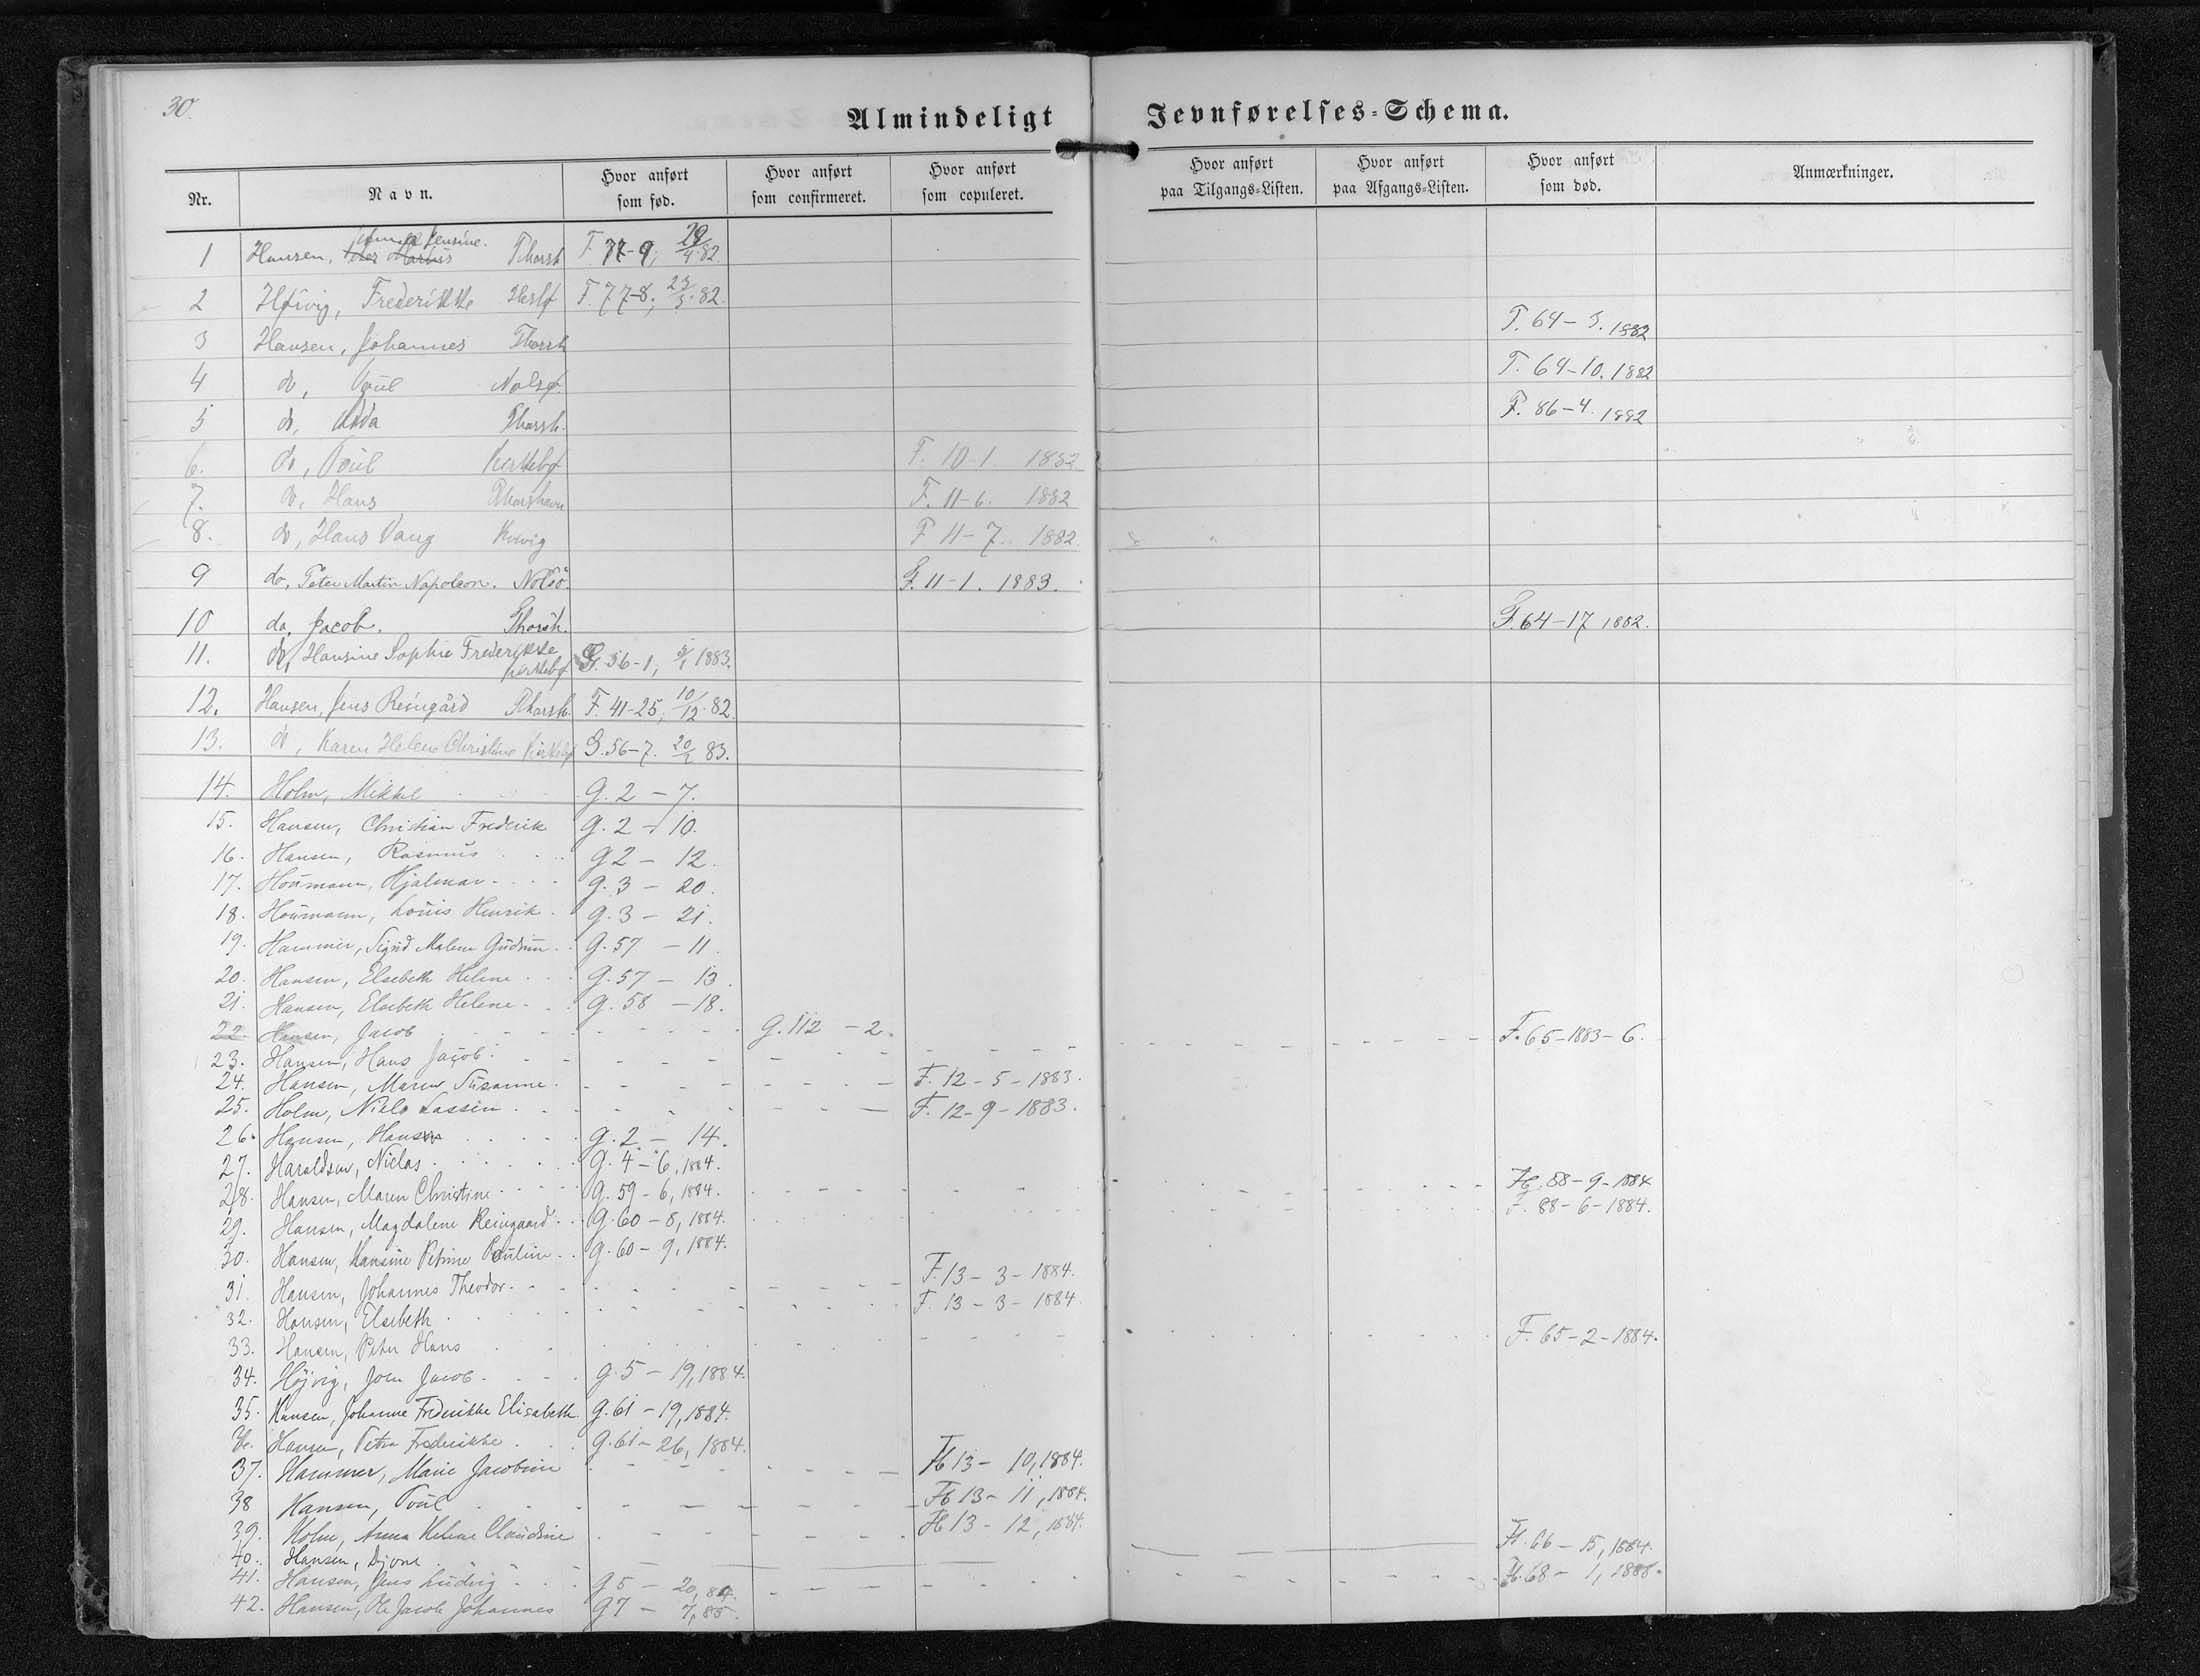 30.
Almindeligt Jevnførelses-Schema.
Nr. Navn. Hvor anført som fød. Hvor anført som confirmeret. Hvor anført som copuleret. Hvor anført paa Tilgangs-Listen. Hvor anført paa Afgangs-Listen. Hvor anført som død. Anmærkninger.
1 Hansen, Jensine. Thorsh F. 77-9, 29/4.82.
2 Høivig, Frederikke F. 77-8, 23/3.82.
3 Hansen, Johannes Thorsh F. 64-5. 1882
4 do, Poul Nolsø. F. 64-10. 1882
5 do, Adda Thorsh. F. 86-4. 1882
6. do, Poul Kirkebø F. 10-1. 1882.
7. do, Hans Thorshavn F. 11-6. 1882
8. do, Hans Vang Kvivig F. 11-7. 1882.
9 do, Peter Martin Napoleon. Nolsö. F. 11-1. 1883.
10 do, Jacob. Thorsh. F. 64-17 1882.
11. do, Hansine Sophie Frederikke Kirkebø G. 56-1, 5/1 1883.
12. Hansen, Jens Reingård Thorsh. F. 41-25, 10/12.82.
13. do, Karen Helene Christine Kirkebø G. 56-7. 20/2 83.
14. Holm, Mikkel G. 2 - 7.
15. Hansen, Christian Frederik G. 2 - 10.
16. Hansen, Rasmus G 2 - 12.
17. Houmann, Hjalmar G. 3 - 20.
18. Houmann, Louis Henrik G. 3 - 21.
19. Hammer, Sigrid Malene Gudrun G. 57 - 11.
20. Hansen, Elsebeth Helene G. 57 - 13.
21. Hansen, Elsebeth Helene G. 58 - 18.
22. Hansen, Jacob G. 112 - 2.
23. Hansen, Hans Jacob F. 65-1883-6.
24. Hansen, Maren Susanne F. 12-5-1883.
25. Holm, Niels Lassen F. 12-9-1883.
26. Hansen, Hans G. 2 - 14.
27. Haraldsen, Niclas G. 4 - 6, 1884.
28. Hansen, Maren Christine G. 59 - 6, 1884. 88-9-1884
29. Hansen, Magdalene Reingaard G. 60 - 8, 1884. F. 88-6-1884.
30. Hansen, Hansine Petrine Pouline G. 60 - 9, 1884.
31. Hansen, Johannes Theodor F. 13 - 3 - 1884.
32. Hansen, Elsebeth F. 13 - 3 - 1884.
33. Hansen, Peter Hans F. 65-2-1884.
34. Højvig, Joen Jacob G. 5 - 19, 1884.
35. Hansen, Johanne Frederikke Elisabeth G. 61 - 19, 1884.
36. Hansen, Petra Frederikke G. 61 - 26, 1884.
37. Hammer, Marie Jacobine Fb 13 - 10, 1884.
38 Hansen, Poul Fb 13 - 11, 1884.
39. Holm, Anna Helene Claudine Fb 13 - 12, 1884.
40. Hansen, Djone 66 - 15, 1884.
41. Hansen, Jens Ludvig G 5 - 20, 84. 68 - 1, 1885.
42. Hansen, Ole Jacob Johannes G 7 - 7, 85.